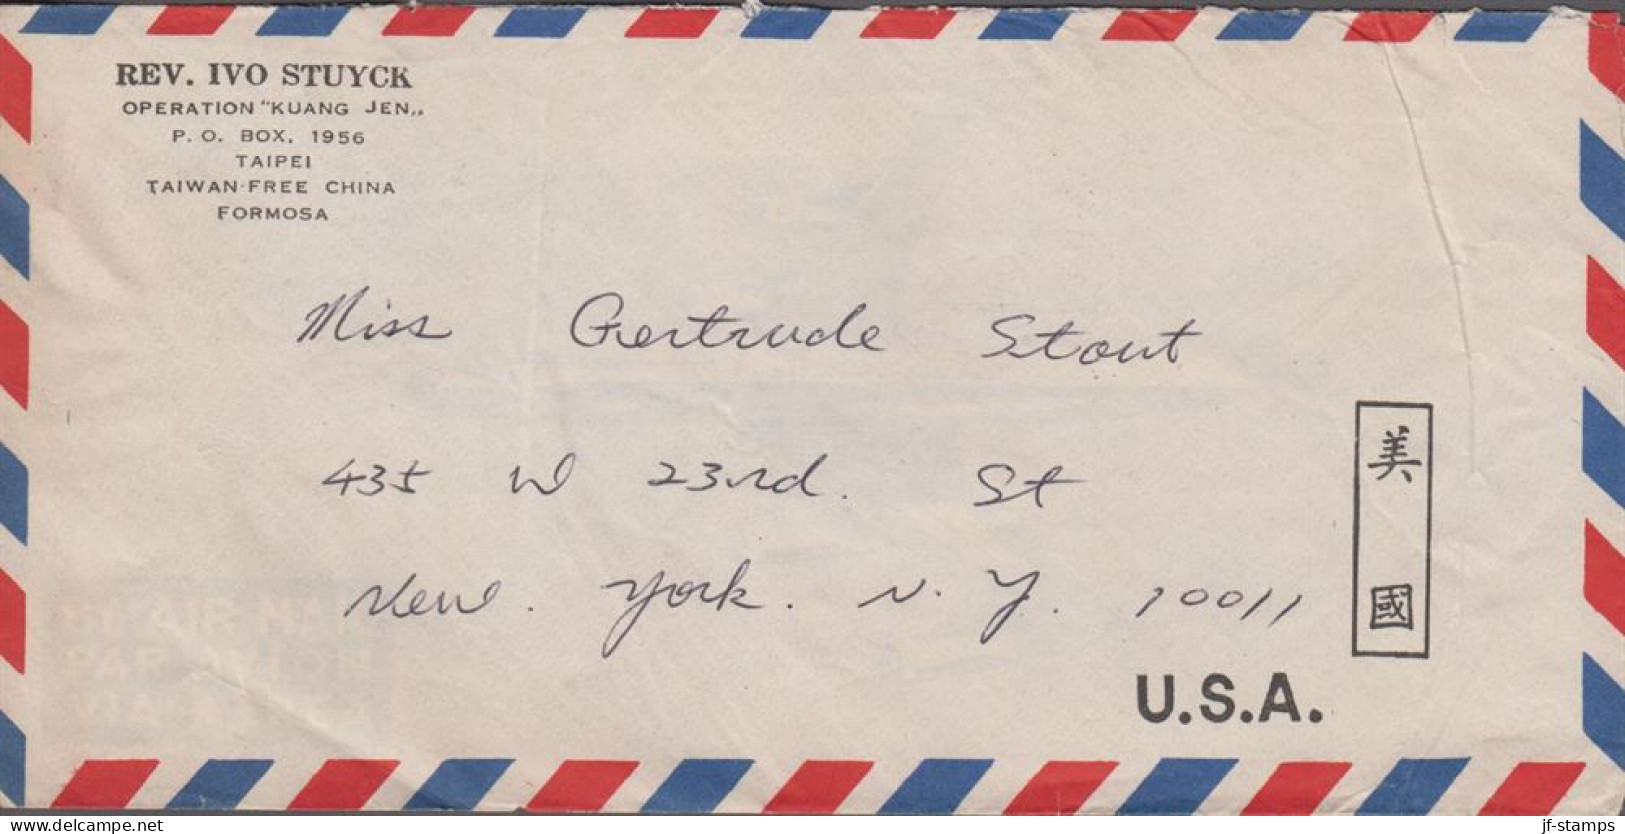 REV. IVO STUYCK
OPERATION "KUANG JEN„
P. O. BOX. 1956
TAIPEI
TAIWAN-FREE CHINA
FORMOSA
Miss Gertrude Stout
435 W 23rd. St
New. York. N. Y. 10011
美
國
U.S.A.
jf-stamps